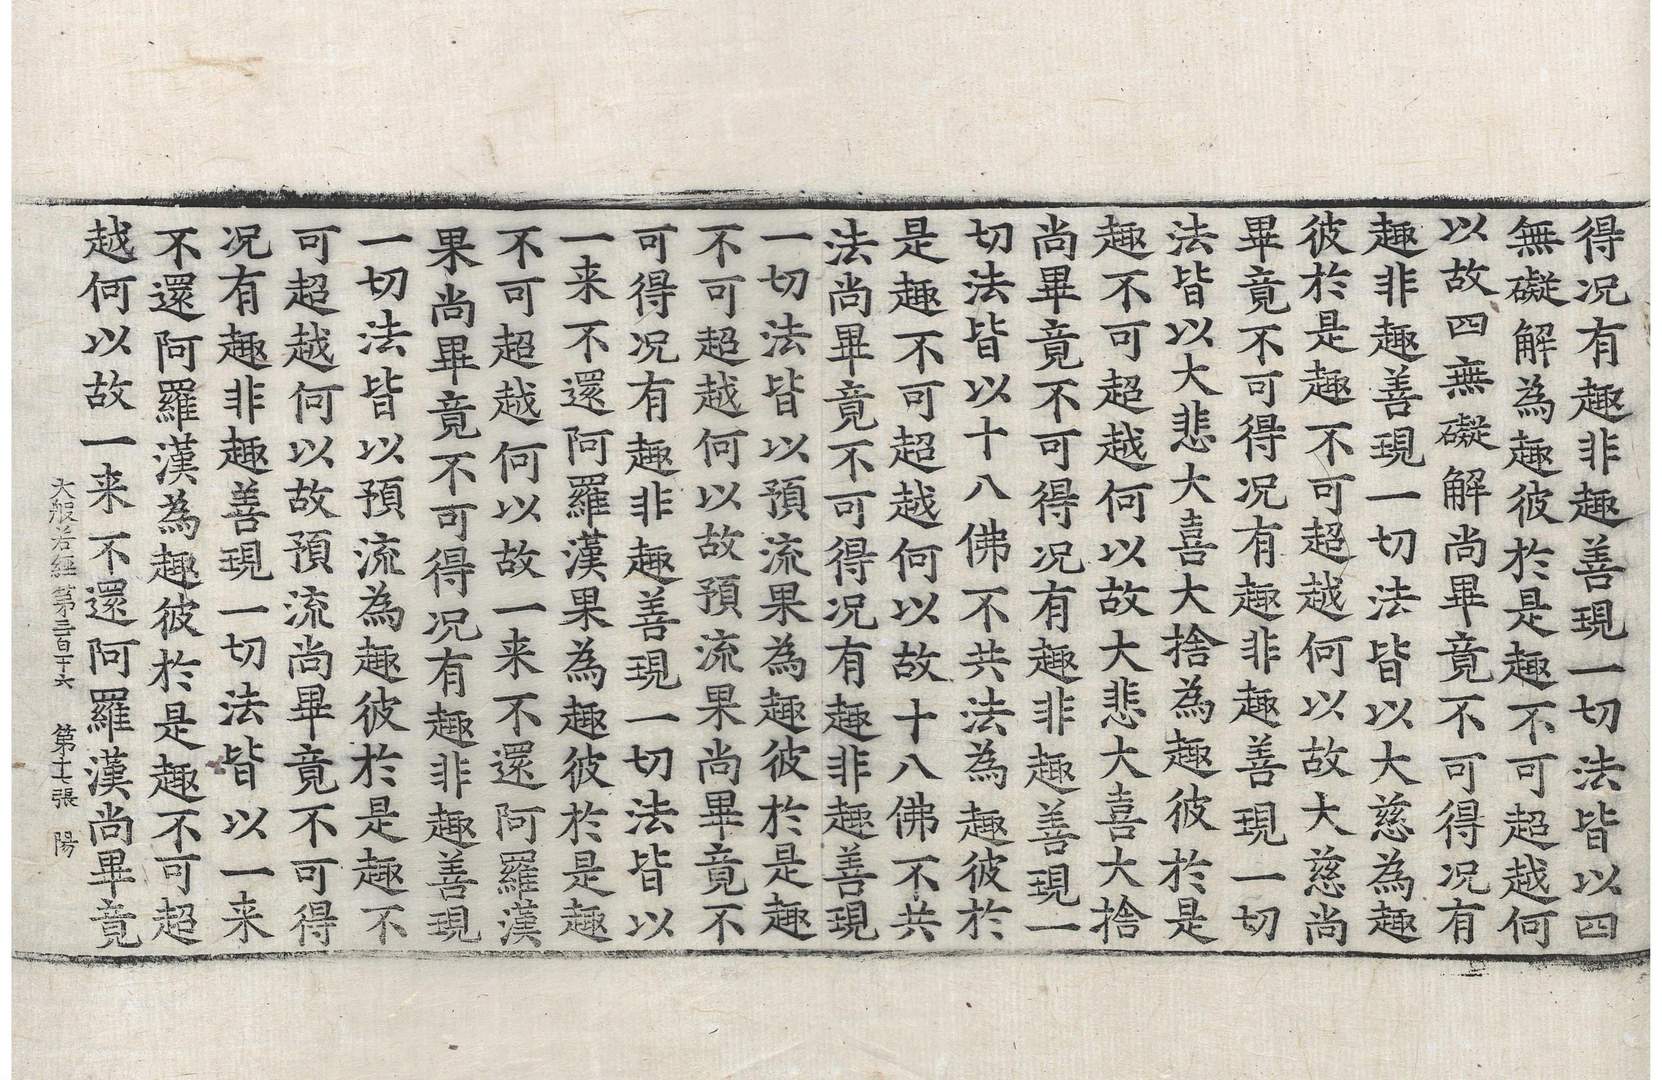 得况有趣非趣善現一切法皆以四
無礙解為趣彼於是趣不可超越何
以故四無礙解尚畢竟不可得况有
趣非趣善現一切法皆以大慈為趣
彼於是趣不可超越何以故大慈尚
畢竟不可得况有趣非趣善現一切
法皆以大悲大喜大捨為趣彼於是
趣不可超越何以故大悲大喜大捨
尚畢竟不可得况有趣非趣善現一
切法皆以十八佛不共法為趣彼於
是趣不可超越何以故十八佛不共
法尚畢竟不可得况有趣非趣善現
一切法皆以預流果為趣彼於是趣
不可超越何以故預流果尚畢竟不
可得况有趣非趣善現一切法皆以
一来不還阿羅漢果為趣彼於是趣
不可超越何以故一来不還阿羅漢
果尚畢竟不可得况有趣非趣善現
一切法皆以預流為趣彼於是趣不
可超越何以故預流尚畢竟不可得
况有趣非趣善現一切法皆以一来
不還阿羅漢為趣彼於是趣不可超
越何以故一来不還阿羅漢尚畢竟
大般若經第三百二十六 第十七張 陽